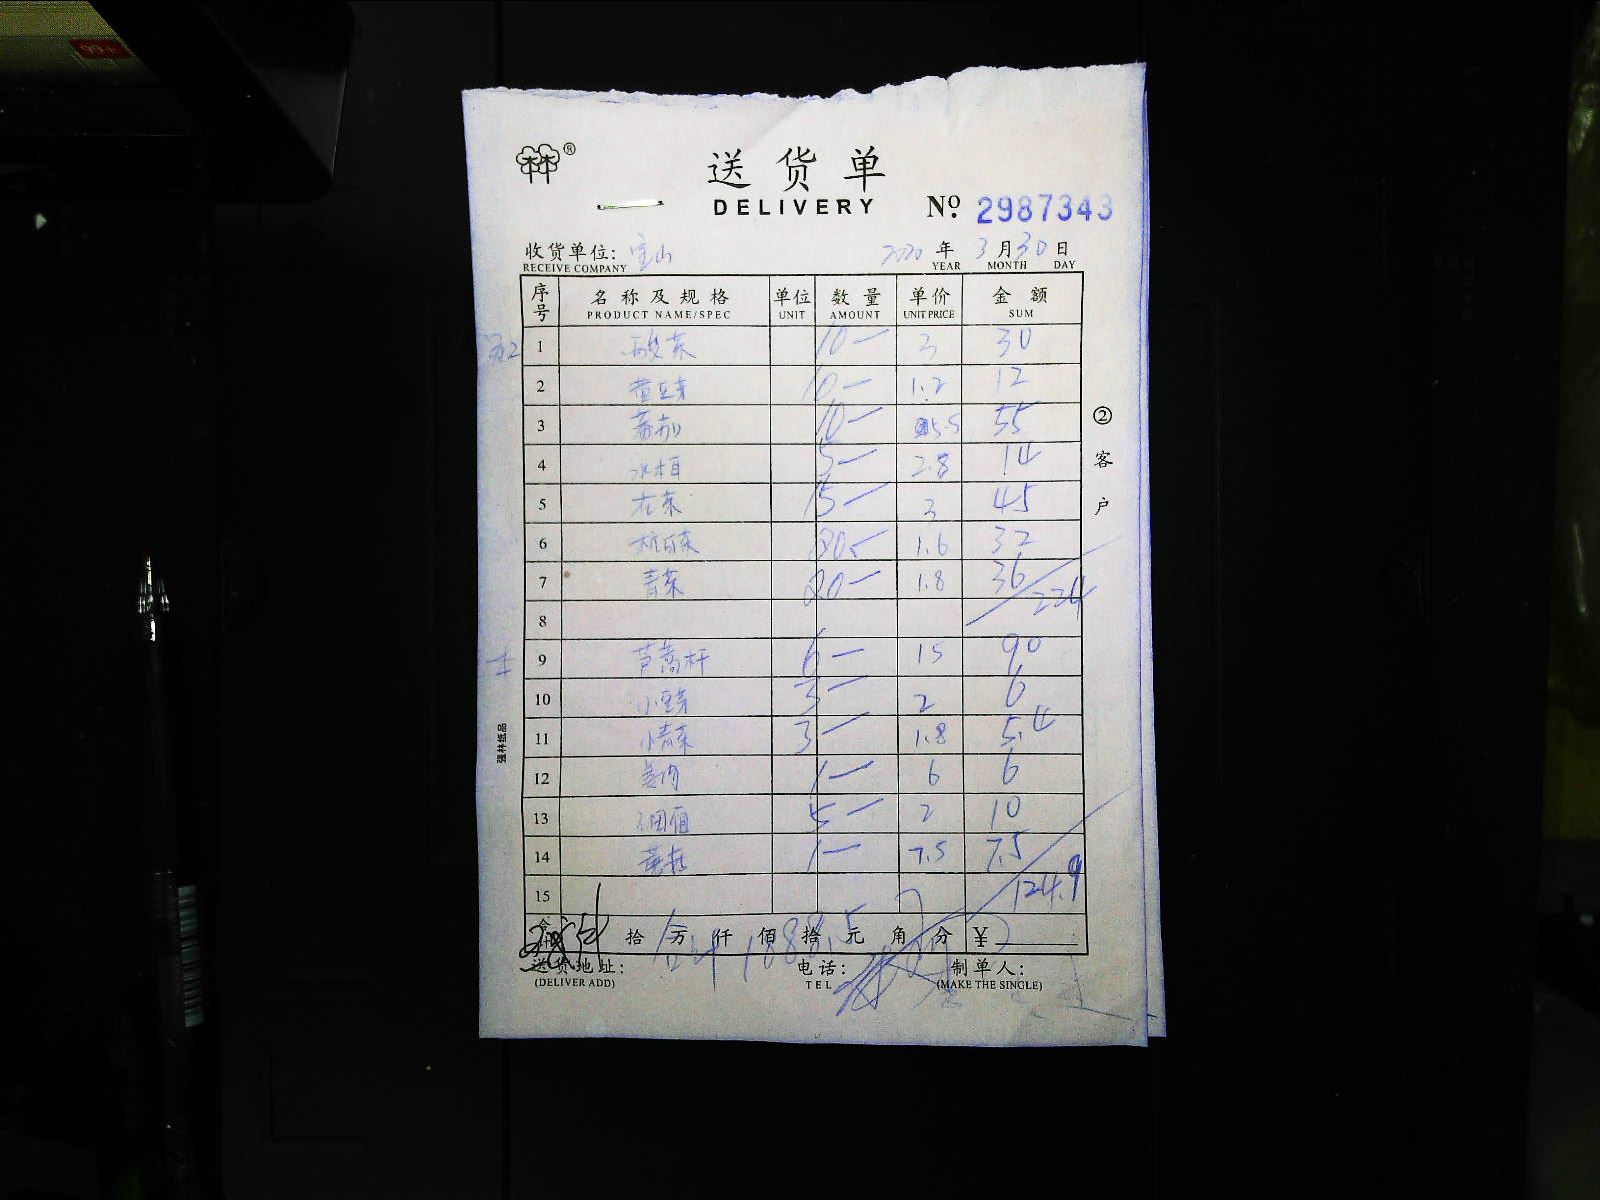 99+
®
送货单
DELIVERY
Nº 2987343
收货单位: 宝山 2020年3月30日
RECEIVE COMPANY YEAR MONTH DAY
序号 名称及规格 单位 数量 单价 金额
PRODUCT NAME/SPEC UNIT AMOUNT UNIT PRICE SUM
1 酸菜 10 3 30
2 黄豆芽 10 1.2 12
3 番茄 10 5.5 55
4 5 2.8 14
5 15 3 45
6 杭白菜 20 1.6 32
7 青菜 20 1.8 36
224
8
9 芦蒿杆 6 15 90
10 小豆芽 3 2 6
11 小青菜 3 1.8 5.4
12 1 6 6
13 5 2 10
14 1 7.5 7.5
15 124.9
②客户
强林纸品
合计 拾万仟佰拾元角分 ¥
合计 1888.5
送货地址: 电话: 制单人:
(DELIVER ADD) TEL (MAKE THE SINGLE)